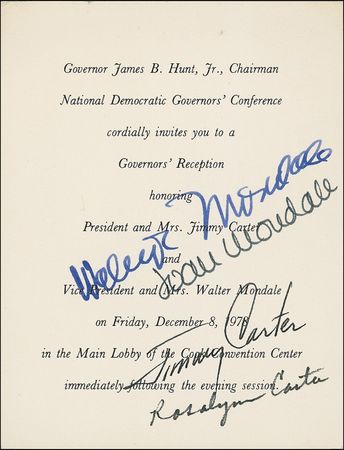 Governor James B. Hunt, Jr., Chairman
National Democratic Governors' Conference
cordially invites you to a
Governors' Reception
honoring
President and Mrs. Jimmy Carter
and
Vice President and Mrs. Walter Mondale
on Friday, December 8, 1978
in the Main Lobby of the Cook Convention Center
immediately following the evening session.
Walter Mondale
Joan Mondale
Jimmy Carter
Rosalynn Carter